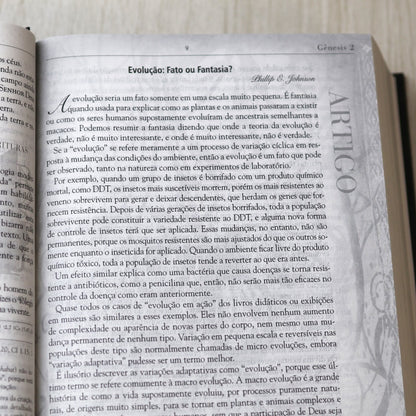 9
Gênesis 2
Evolução: Fato ou Fantasia?
Phillip E. Johnson
A evolução seria um fato somente em uma escala muito pequena. É fantasia
quando usada para explicar como as plantas e os animais passaram a existir
ou como os seres humanos supostamente evoluíram de ancestrais semelhantes a
macacos. Podemos resumir a fantasia dizendo que onde a teoria da evolução é
verdade, não é muito interessante, e onde é muito interessante, não é verdade.
Se a “evolução” se refere meramente a um processo de variação cíclica em res-
posta à mudança das condições do ambiente, então a evolução é um fato que pode
ser observado, tanto na natureza como em experimentos de laboratório.
Por exemplo, quando um grupo de insetos é borrifado com um produto químico
mortal, como DDT, os insetos mais suscetíveis morrem, porém os mais resistentes ao
veneno sobrevivem para gerar e deixar descendentes, que herdam os genes que for-
necem resistência. Depois de várias gerações de insetos borrifados, toda a população
sobrevivente pode constituir a variedade resistente ao DDT, e alguma nova forma
de controle de insetos terá que ser aplicada. Essas mudanças, no entanto, não são
permanentes, porque os mosquitos resistentes são mais ajustados do que os outros so-
mente enquanto o inseticida for aplicado. Quando o ambiente ficar livre do produto
químico tóxico, toda a população de insetos tende a reverter ao que era antes.
Um efeito similar explica como uma bactéria que causa doenças se torna resis-
tente a antibióticos, como a penicilina que, então, não serão mais tão eficazes no
controle da doença como eram anteriormente.
Quase todos os casos de “evolução em ação” dos livros didáticos ou exibições
em museus são similares a esses exemplos. Eles não envolvem nenhum aumento
de complexidade ou aparência de novas partes do corpo, nem mesmo uma mu-
dança permanente de nenhum tipo. Variação em pequena escala e reversíveis nas
populações deste tipo são normalmente chamadas de micro evoluções, embora
“variação adaptativa” pudesse ser um termo melhor.
É ilusório descrever as variações adaptativas como “evolução”, porque esse úl-
timo termo se refere comumente à macro evolução. A macro evolução é a grande
história de como a vida supostamente evoluiu, por processos puramente natu-
rais, de origens muito simples, para se tornar formas complexas, como plantas,
sem que a participação de Deus seja
ARTIGO